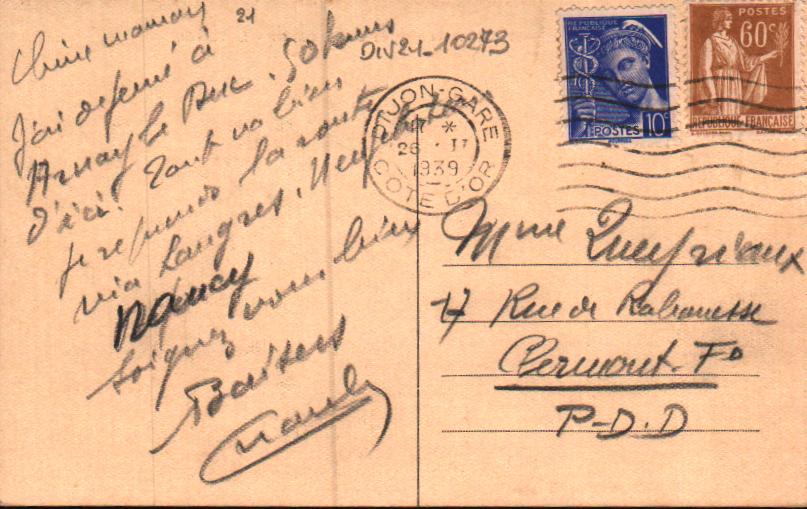 Chère maman
J'ai dejeuné à
Arnay le Duc. 50 kms
d'ici. Tout va bien
je reprends la route
via Langres. Neufchateau
Nancy
Soignez vous bien
Baisers
21
DIV21-10273
DIJON-GARE
*
26 · II
1939
COTE D'OR
REPUBLIQUE FRANÇAISE
POSTES 10c
POSTES
60c
REPUBLIQUE FRANÇAISE
Mme Queyriaux
17 Rue de Rabanesse
Clermont-Fd
P-D.D